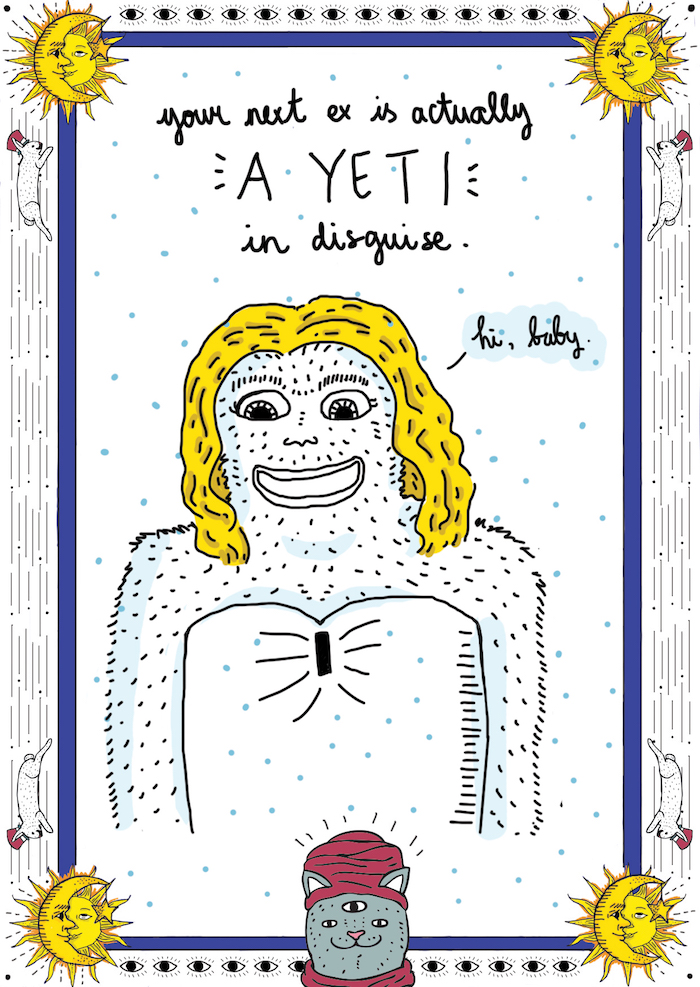 your next ex is actually
A YETI
in disguise.
hi, baby.